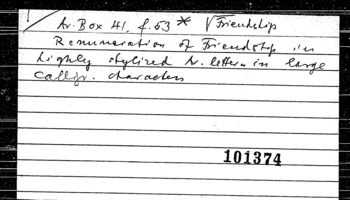 Ar. Box 41, f. 53 * √ Friendship
Renunciation of Friendship in
highly stylized Ar. letters in large
calligr. characters
101374